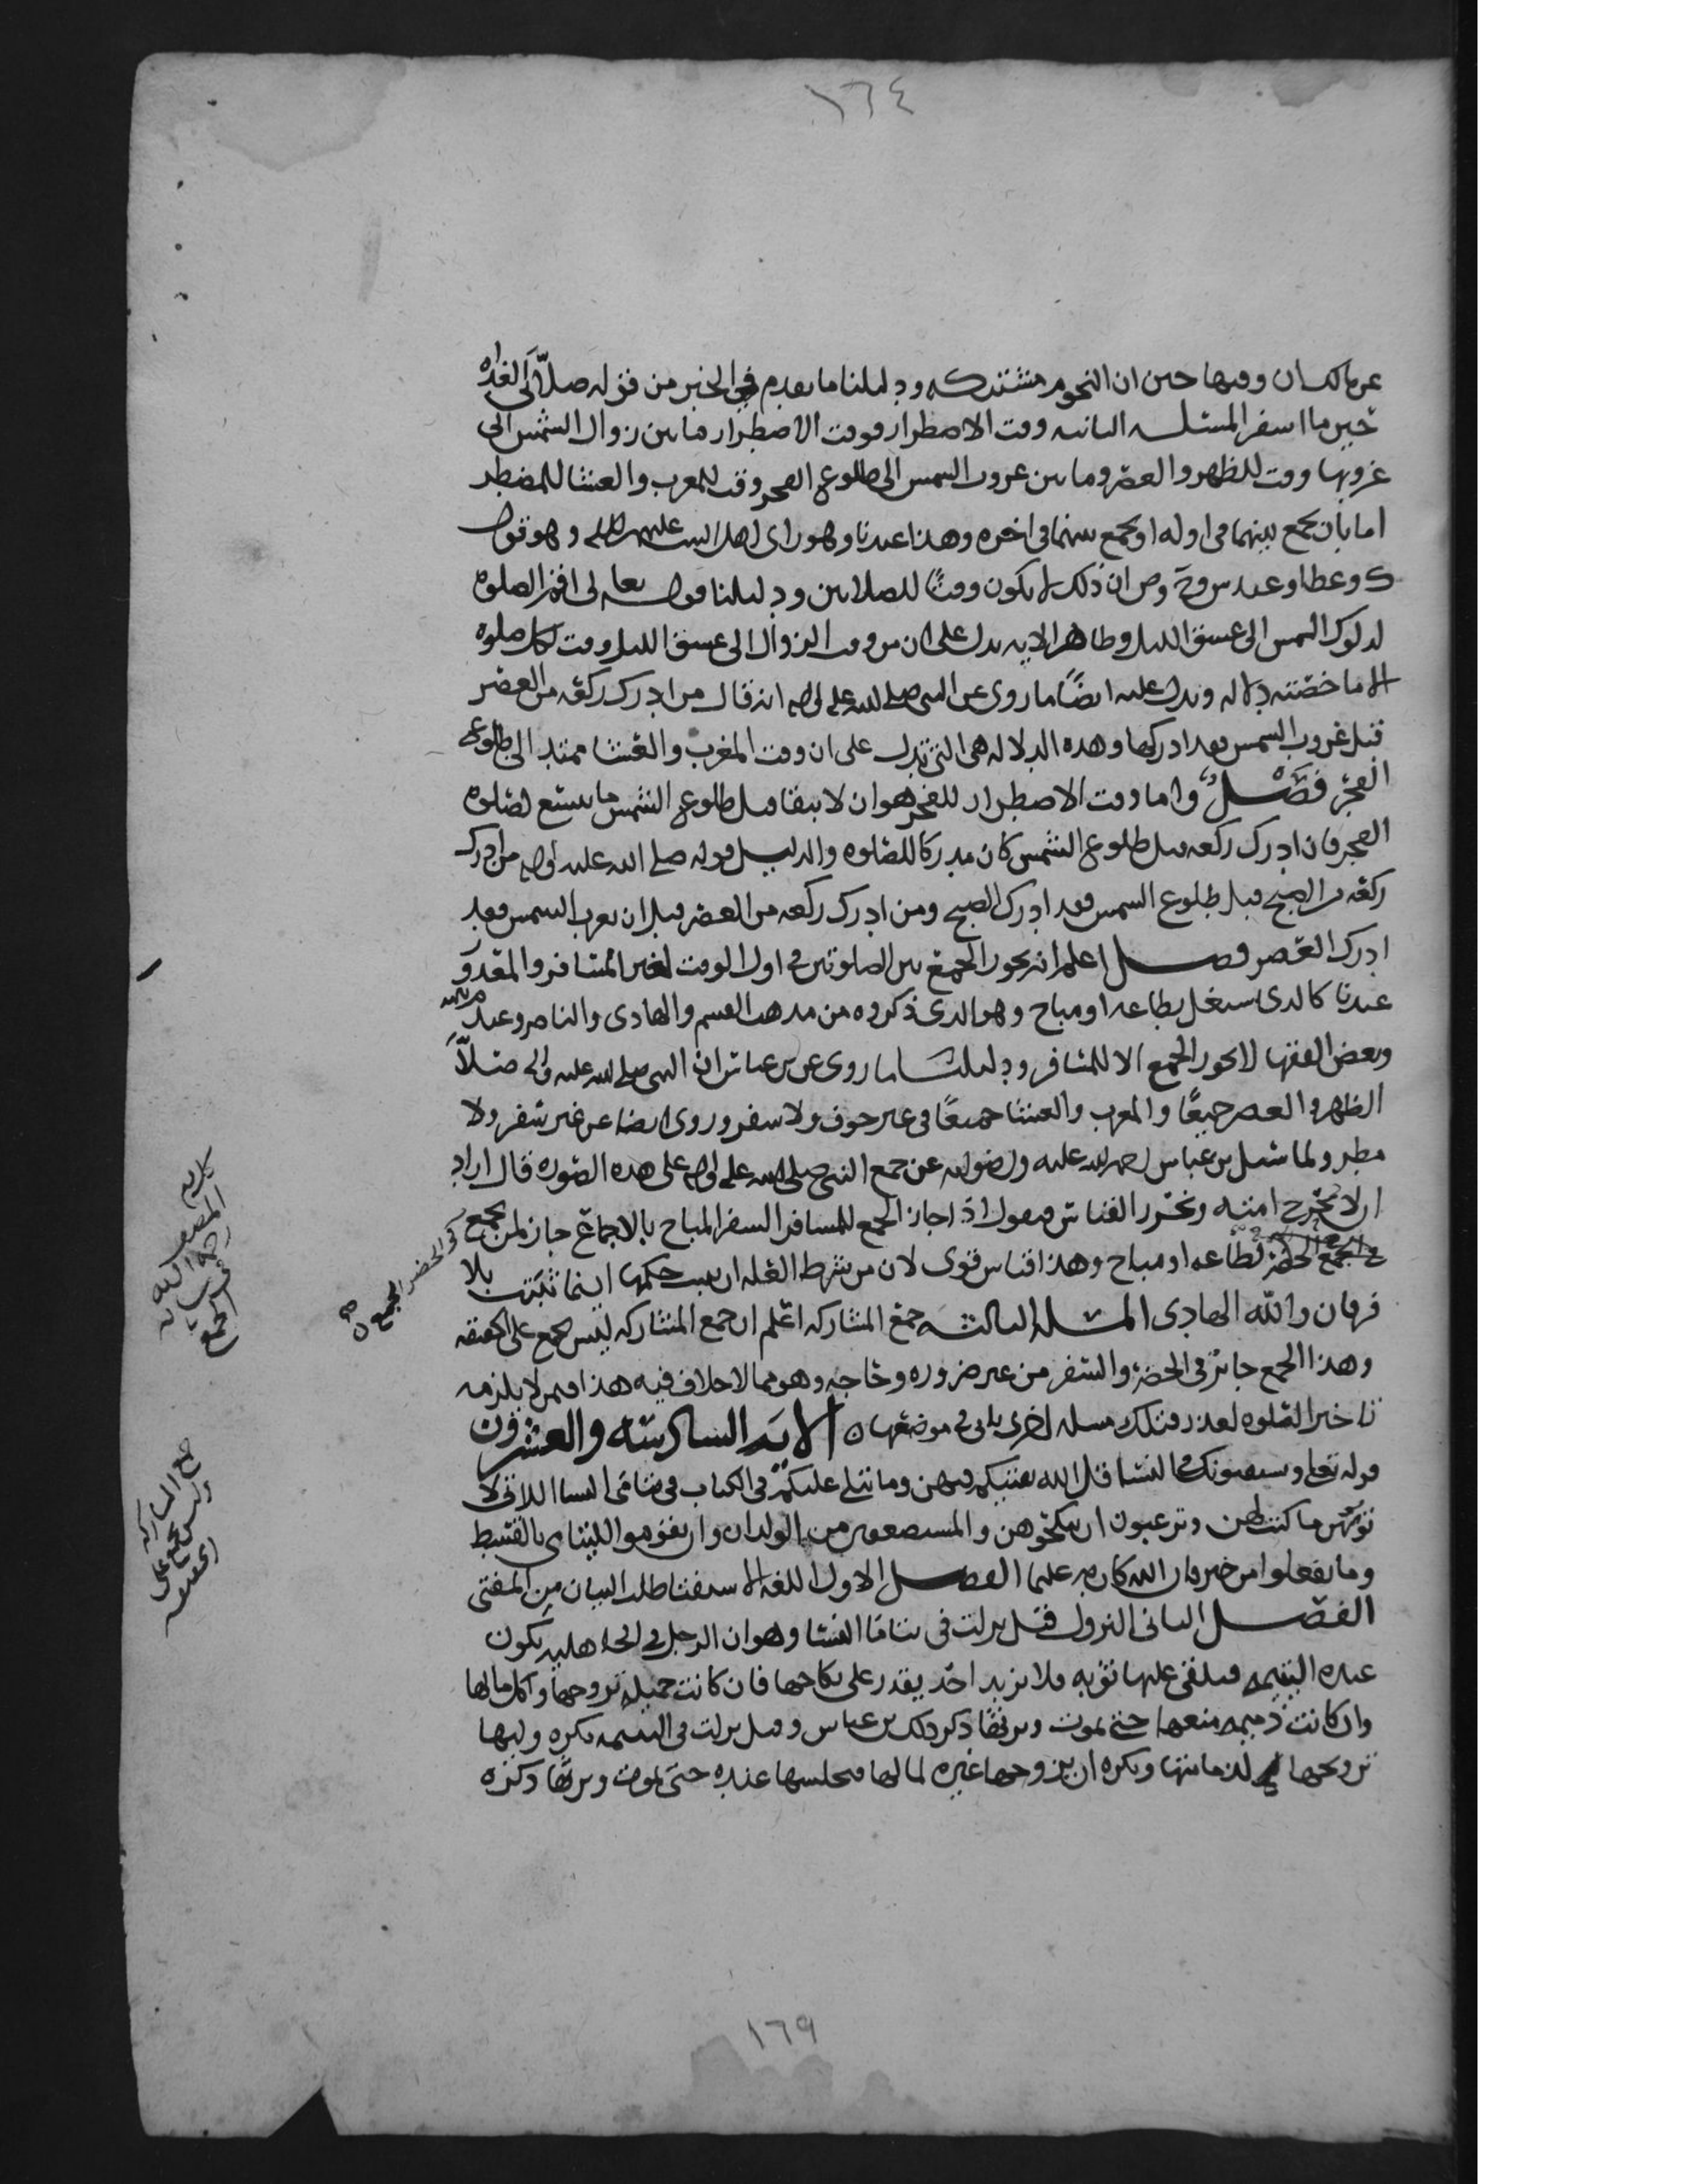 ١٦٤
عن مالك ان وقتها حين ان النجوم مشتبكه ودليلنا ما تقدم في الخبر من قوله صلا الغداه
حين ما اسفر المسئله الثانيه وقت الاضطرار فوقت الاضطرار ما بين زوال الشمس الى
غروبها وقت للظهر والعصر وما بين غروب الشمس الى طلوع الفجر وقت للمغرب والعشا للمضطر
اما بان يجمع بينهما في اوله او يجمع بينهما في اخره وهذا عندنا وهو راى اهل البيت عليهم السلم وهو قول
ك وعطا وعند ان ذلك لا يكون وقتًا للصلاتين ودليلنا قوله تعالى اقم الصلوه
لدلوك الشمس الى غسق الليل وظاهر الايه يدل على ان من وقت الزوال الى غسق الليل وقت لكل صلوه
الا ما خصته دلاله ويدل عليه ايضًا ما روى عن النبي صلى الله عليه واله انه قال من ادرك ركعه من العصر
قبل غروب الشمس فقد ادركها وهذه الدلاله هى التي تدل على ان وقت المغرب والعشا ممتد الى طلوع
الفجر فصل واما وقت الاضطرار للفجر فهو ان لا يبقا قبل طلوع الشمس ما يتسع لصلوه
الفجر فان ادرك ركعه قبل طلوع الشمس كان مدركا للصلوه والدليل قوله صلى الله عليه واله من ادرك
ركعه من الصبح قبل طلوع الشمس فقد ادرك الصبح ومن ادرك ركعه من العصر قبل ان تغرب الشمس فقد
ادرك العصر فصل اعلم انه يجوز الجمع بين الصلوتين في اول الوقت لغير المسافر والمعذور
عندنا كالذى يشتغل بطاعه او مباح وهو الذى ذكروه من مذهب القسم والهادى والناصر وعند
وبعض الفقها لا يجوز الجمع الا للمسافر ودليلنا ما روى عن بن عباس ان النبي صلى الله عليه واله صلا
الظهر والعصر جميعًا والمغرب والعشا جميعًا في غير خوف ولا سفر وروى ايضا عن غير سفر ولا
مطر ولما سئل بن عباس رحمه الله عليه ورضوانه عن جمع النبي صلى الله عليه واله على هذه الصوره قال اراد
ان لا تحرج امته وتحرر القياس فيقول اذا جاز الجمع للمسافر السفر المباح بالاجماع جاز لمن يجمع
لطاعه او مباح وهذا قياس قوى لان من شرط العله ان يثبت حكمها اينما ثبتت بلا
فرقان والله الهادى المسئله الثالثه جمع المشاركه اعلم ان جمع المشاركه ليس بجمع على الحقيقه
وهذا الجمع جائز في الحضر والسفر من غير ضروره وحاجه وهو مما لا خلاف فيه هذا فيمن لا يلزمه
تاخير الصلوه لعذر فتلك مسله اخرى ياتى في موضعها الايه السادسه والعشرون
قوله تعالى ويستفتونك في النسا قل الله يفتيكم فيهن وما يتلى عليكم في الكتاب في يتامى النسا اللاتى لا
تؤتونهن ما كتب لهن وترغبون ان تنكحوهن والمستضعفين من الولدان وان تقوموا لليتامى بالقسط
وما تفعلوا من خير فان الله كان به عليما الفصل الاول اللغه الاستفتا طلب البيان من المفتى
الفصل الثانى النزول قيل نزلت في يتاما النسا وهو ان الرجل في الجاهليه يكون
عنده اليتيمه فيلقى عليها ثوبه فلا يريد احد يقدر على نكاحها فان كانت جميله تزوجها واكل مالها
وان كانت ذميمه منعها حتى تموت ويرثها ذكر ذلك بن عباس وقيل نزلت في اليتيمه يكره وليها
تزويجها لدمامتها ويكره ان يزوجها غيره لمالها فيحبسها عنده حتى تموت ويرثها ذكره
في الحضر الجمع صح
كلام
المصنف
رحمه الله
في رساله
الجمع
جمع المشاركه
وليس بجمع على
الحقيقه
١٦٩